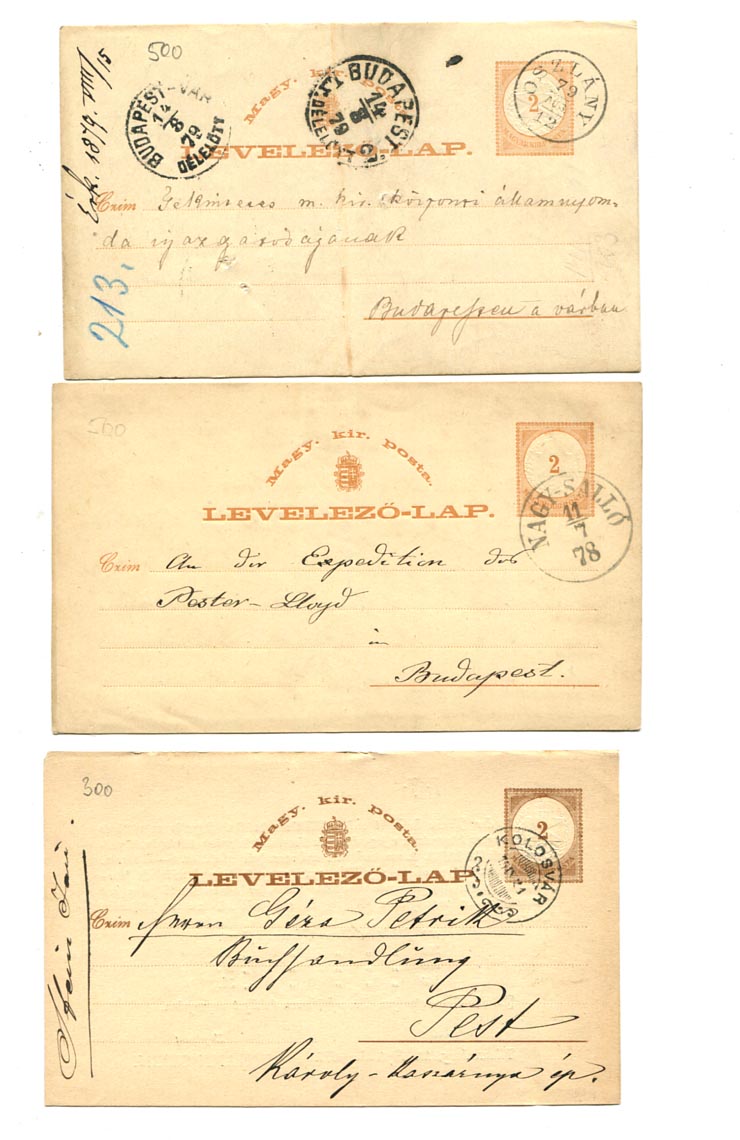 500
BUDAPEST-VÁR
14/8 79
DÉLELŐTT
BUDAPEST
14/8 79
OSZLÁNY
79
12
2
Magy. kir. posta.
LEVELEZŐ-LAP.
Czim Tekintetes m. kir. központi államnyom-
da igazgatóságának
Budapesten a várban
213.
500
Magy. kir. posta.
2
LEVELEZŐ-LAP.
NAGY-SALLÓ
11/7
78
Czim An der Expedition des
Pester-Lloyd
in
Budapest.
300
Magy. kir. posta.
2
LEVELEZŐ-LAP.
KOLOSVÁR
Czim Herrn Géza Petrik
Buchhandlung
Pest
Károly-Kaszárnya ép.
Stein